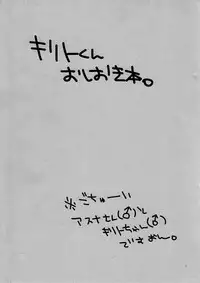 キリトくん
おしおき本。
※ごちゅーい
アスナさん(♂)と
キリトちゃん(♂)
ですよん。